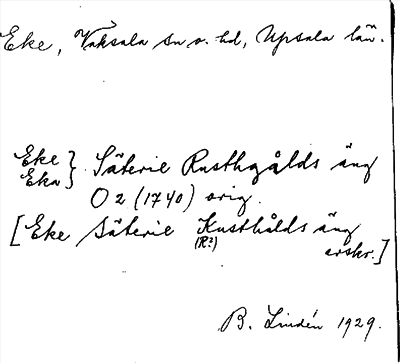 Eke, Vaksala sn o. hd, Upsala län.
Eke } Säterie Rusthgålds äng
Eka }
O 2 (1740) orig.
[Eke Säterie Kusthålds äng
(R?) avskr.]
B. Lindén 1929.